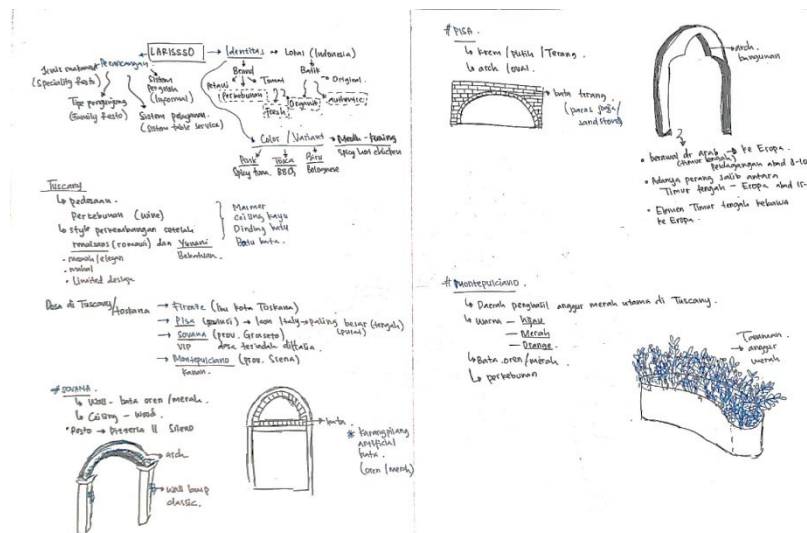 LARISSSO → Identitas → Lokal (Indonesia)
Perancangan
Jenis restoran
(Speciality Resto)
Tipe pengunjung
(Family Resto)
Sistem
Penyajian
(Informal)
Sistem pelayanan
(Sistem table service)
Brand
Petani
Perkebunan
Tomat
fresh
Organik
Batik
Original
authentic
Color / Variant
Pink
Spicy tuna
Tosca
BBQ
Biru
Bolognese
Spicy hot chicken
Tuscany
↳ pedesaan
Perkebunan (wine)
↳ style perkembangan setelah
renaissans (romawi) dan Yunani
• mewah/elegan
• mahal
• Limited design
Marmer
Ceiling kayu
Dinding batu
Batu bata
Desa di Tuscany/
toskana
→ Firenze (Ibu kota Toskana)
→ PISA
→ icon Italy → paling besar (tengah)
→ SOVANA (prov. Grosseto)
VIP desa terindah diItalia
→ Montepulciano (prov. Siena)
# SOVANA
↳ Wall - bata oren/merah
↳ Ceiling - wood
• Resto → Pizzeria Il Sileno
→ arch
→ wall lamp
classic
→ bata
* Karangpilang
artificial
bata
(oren/merah)
# PISA
↳ Krem / Putih / Terang
↳ arch /oval
→ bata terang
(paras jogja/
sandstone)
→ arch
bangunan
• berawal dr arab → ke Eropa
(timur tengah) perdagangan abad 8-10
• Adanya perang salib antara
Timur tengah - Eropa abad 15-
• Elemen Timur tengah kebawa
ke Eropa.
# Montepulciano
↳ Daerah penghasil anggur merah utama di Tuscany.
↳ Warna - hijau
- Merah
- Orange
↳ Bata oren/merah
↳ perkebunan
Tanaman
→ anggur
merah